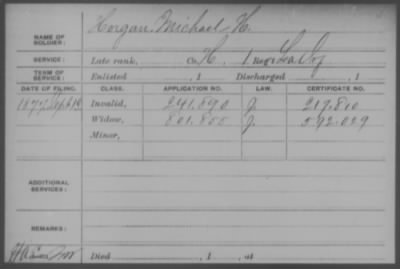 NAME OF SOLDIER: Horgan, Michael H.
SERVICE: Late rank, Co. H, 1 Reg't La Inf
TERM OF SERVICE: Enlisted , 1 Discharged , 1
DATE OF FILING. CLASS. APPLICATION NO. LAW. CERTIFICATE NO.
1877 Sept Invalid, 241.890 J. 219.810
Widow, 801.808 J. 592.029
Minor,
ADDITIONAL SERVICES:
REMARKS:
Died , 1 , at